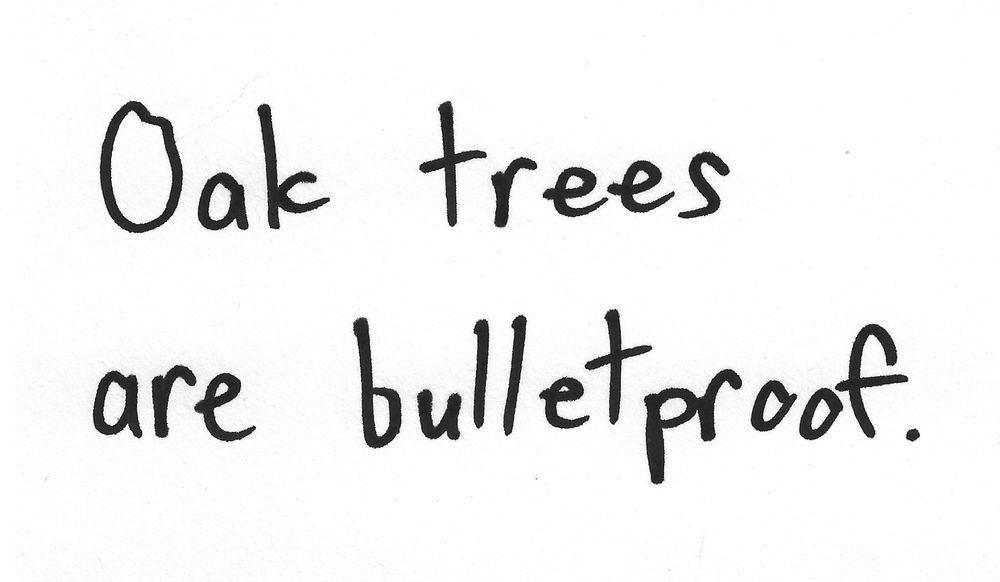 Oak trees
are bulletproof.